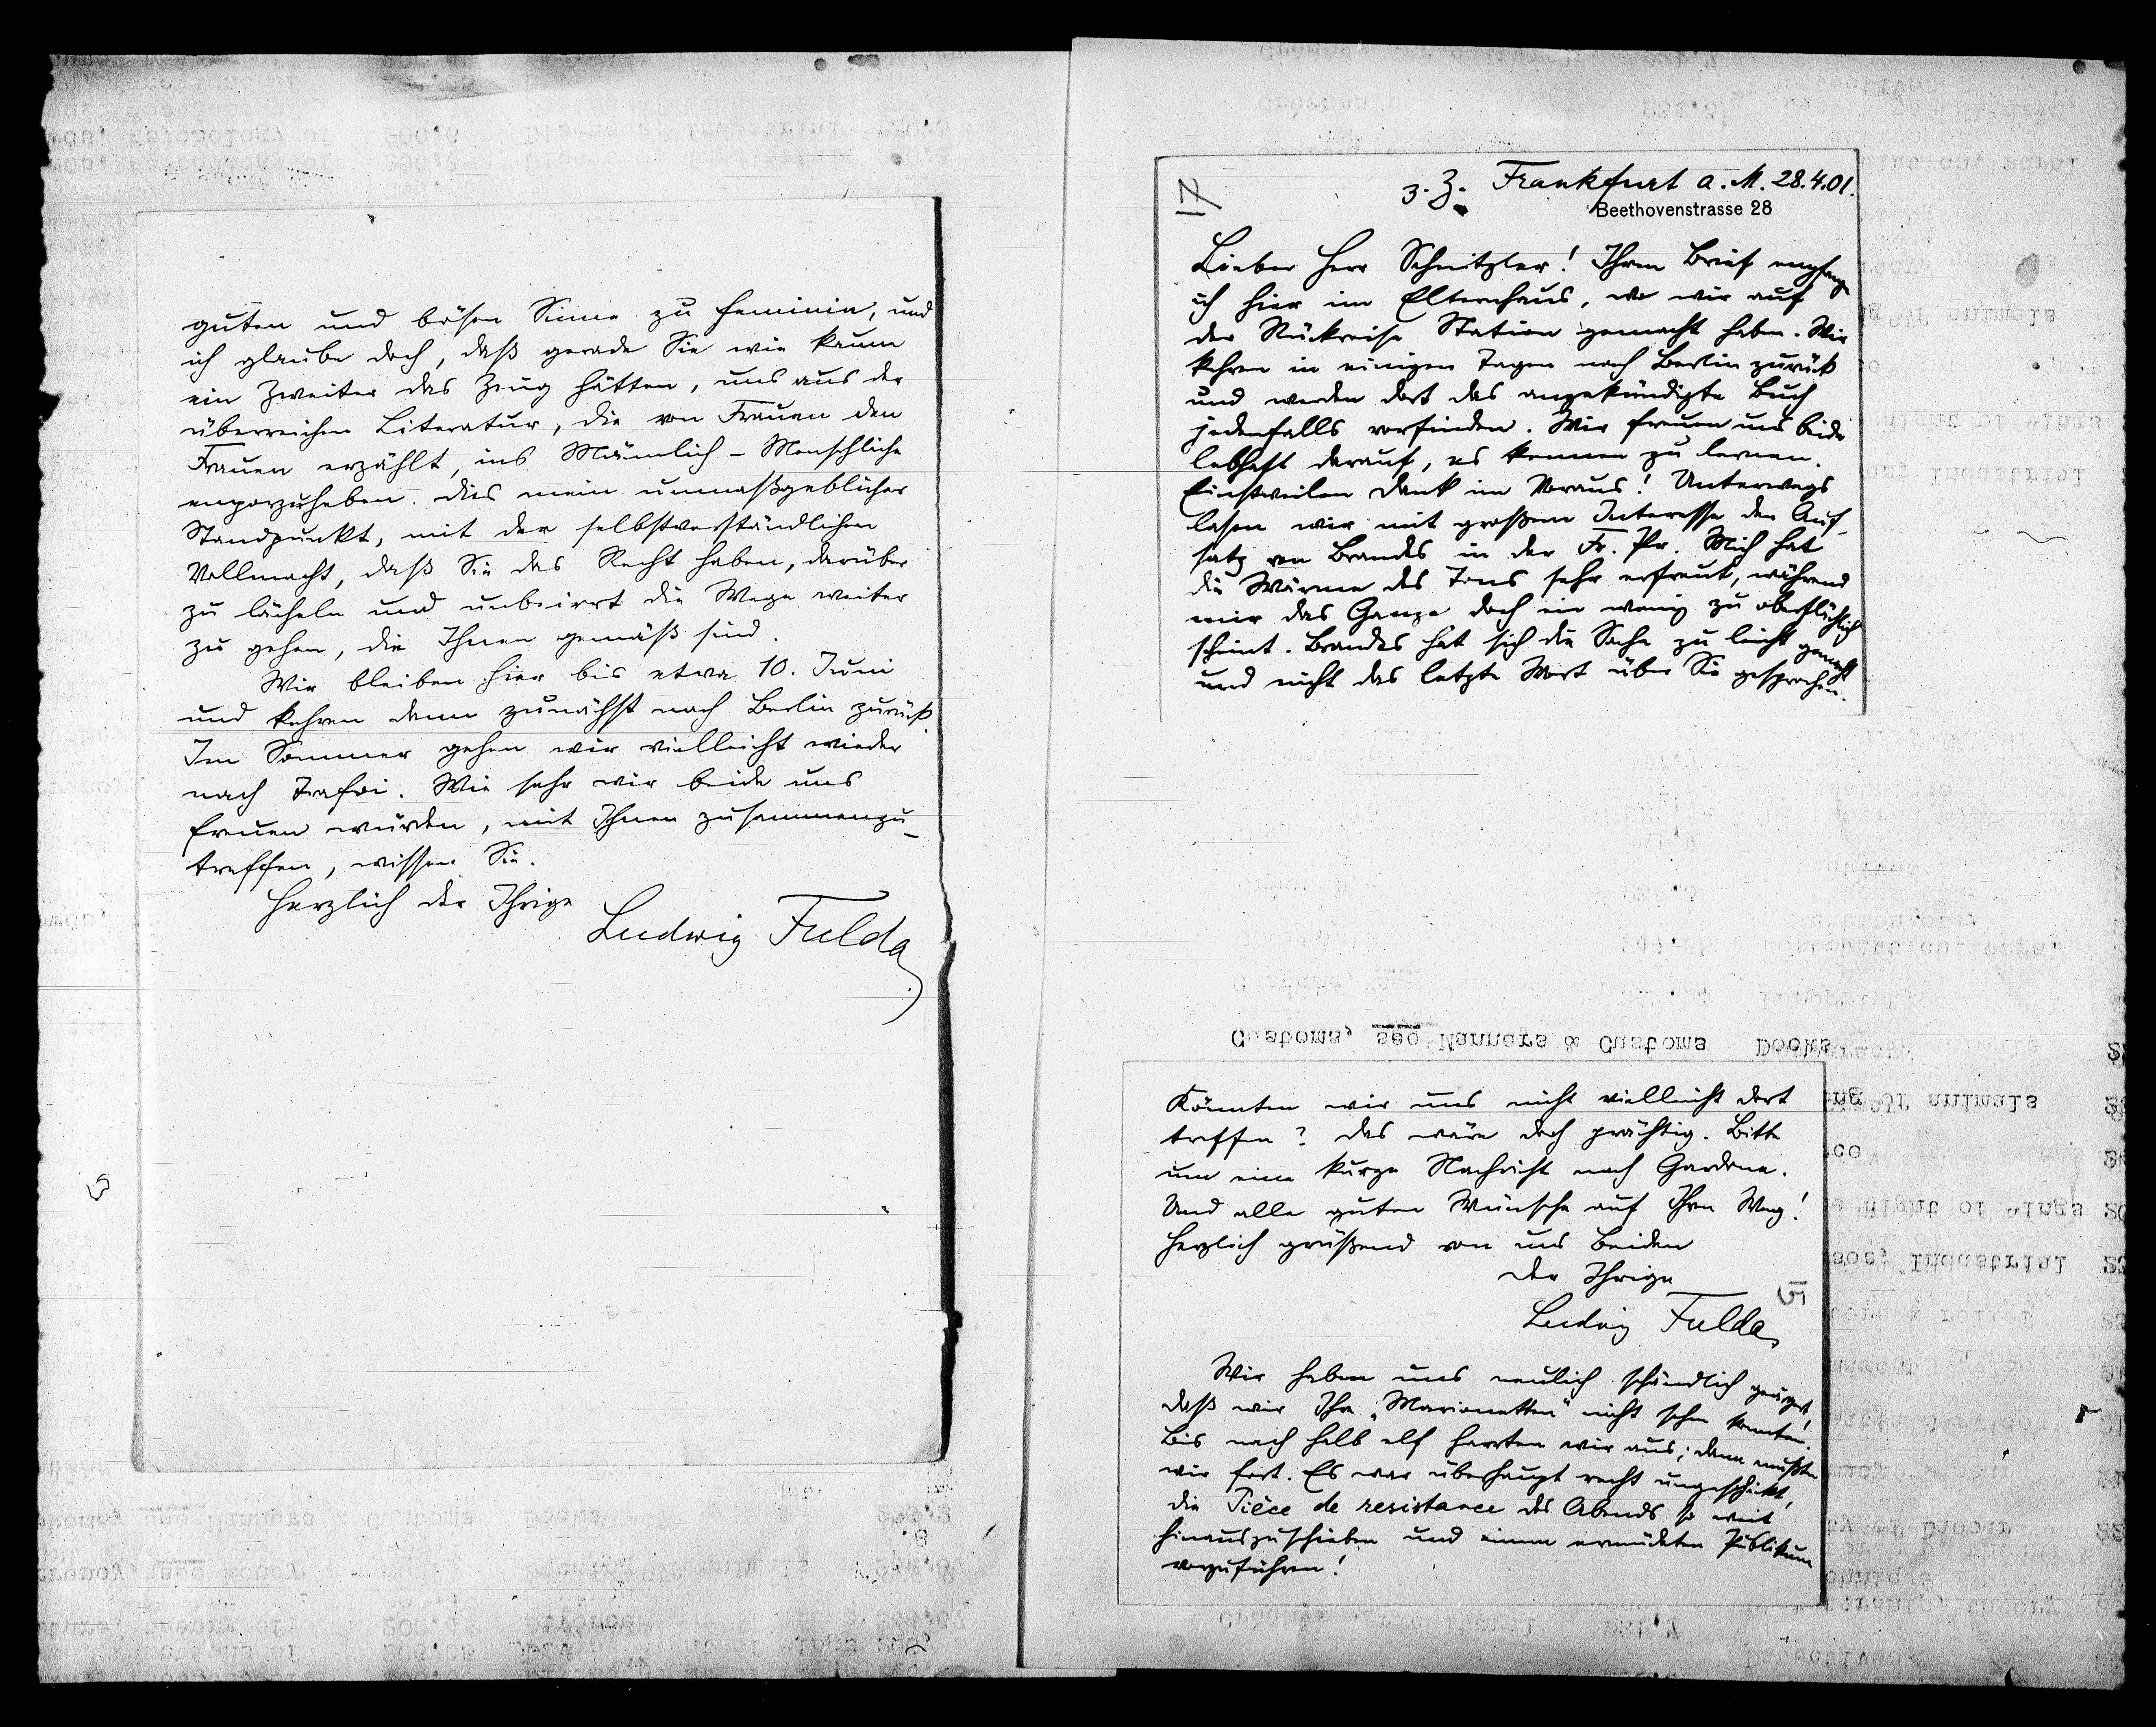 guten und bösen Sinne zu feminin, und
ich glaube doch, daß gerade Sie wie kaum
ein Zweiter das Zeug hätten, uns aus der
überreichen Literatur, die von Frauen den
Frauen erzählt, ins Männlich-Menschliche
emporzuheben. Dies mein unmaßgeblicher
Standpunkt, mit der selbstverständlichen
Vollmacht, daß Sie das Recht haben, darüber
zu lächeln und unbeirrt die Wege weiter
zu gehen, die Ihnen gemäß sind.
Wir bleiben hier bis etwa 10. Juni
und kehren dann zunächst nach Berlin zurück.
Im Sommer gehen wir vielleicht wieder
nach Trafoi. Wie sehr wir beide uns
freuen würden, mit Ihnen zusammenzu-
treffen, wissen Sie.
Herzlich der Ihrige
Ludwig Fulda
17
z. Z. Frankfurt a. M. 28.4.01.
Beethovenstrasse 28
Lieber Herr Schnitzler! Ihren Brief empfange
ich hier im Elternhaus, wo wir auf
der Rückreise Station gemacht haben. Wir
kehren in einigen Tagen nach Berlin zurück
und werden dort das angekündigte Buch
jedenfalls vorfinden. Wir freuen uns beide
lebhaft darauf, es kennen zu lernen.
Einstweilen Dank im Voraus! Unterwegs
lasen wir mit großem Interesse den Auf-
satz von Brandes in der Fr. Pr. Mich hat
die Wärme des Tons sehr erfreut, während
mir das Ganze doch ein wenig zu oberflächlich
scheint. Brandes hat sich die Sache zu leicht gemacht
und nicht das letzte Wort über Sie gesprochen.
Customs, see Manners & Customs
Könnten wir uns nicht vielleicht dort
treffen? Das wäre doch prächtig. Bitte
um eine kurze Nachricht nach Gardone.
Und alle guten Wünsche auf Ihren Weg!
Herzlich grüßend von uns Beiden
der Ihrige
Ludwig Fulda
15
Wir haben uns neulich schändlich geärgert,
daß wir Ihre „Marionetten" nicht sehn konnten!
Bis nach halb elf harrten wir aus; dann mußten
wir fort. Es war überhaupt recht ungeschickt,
die Pièce de resistance des Abends so weit
hinauszuschieben und einem ermüdeten Publikum
vorzuführen!